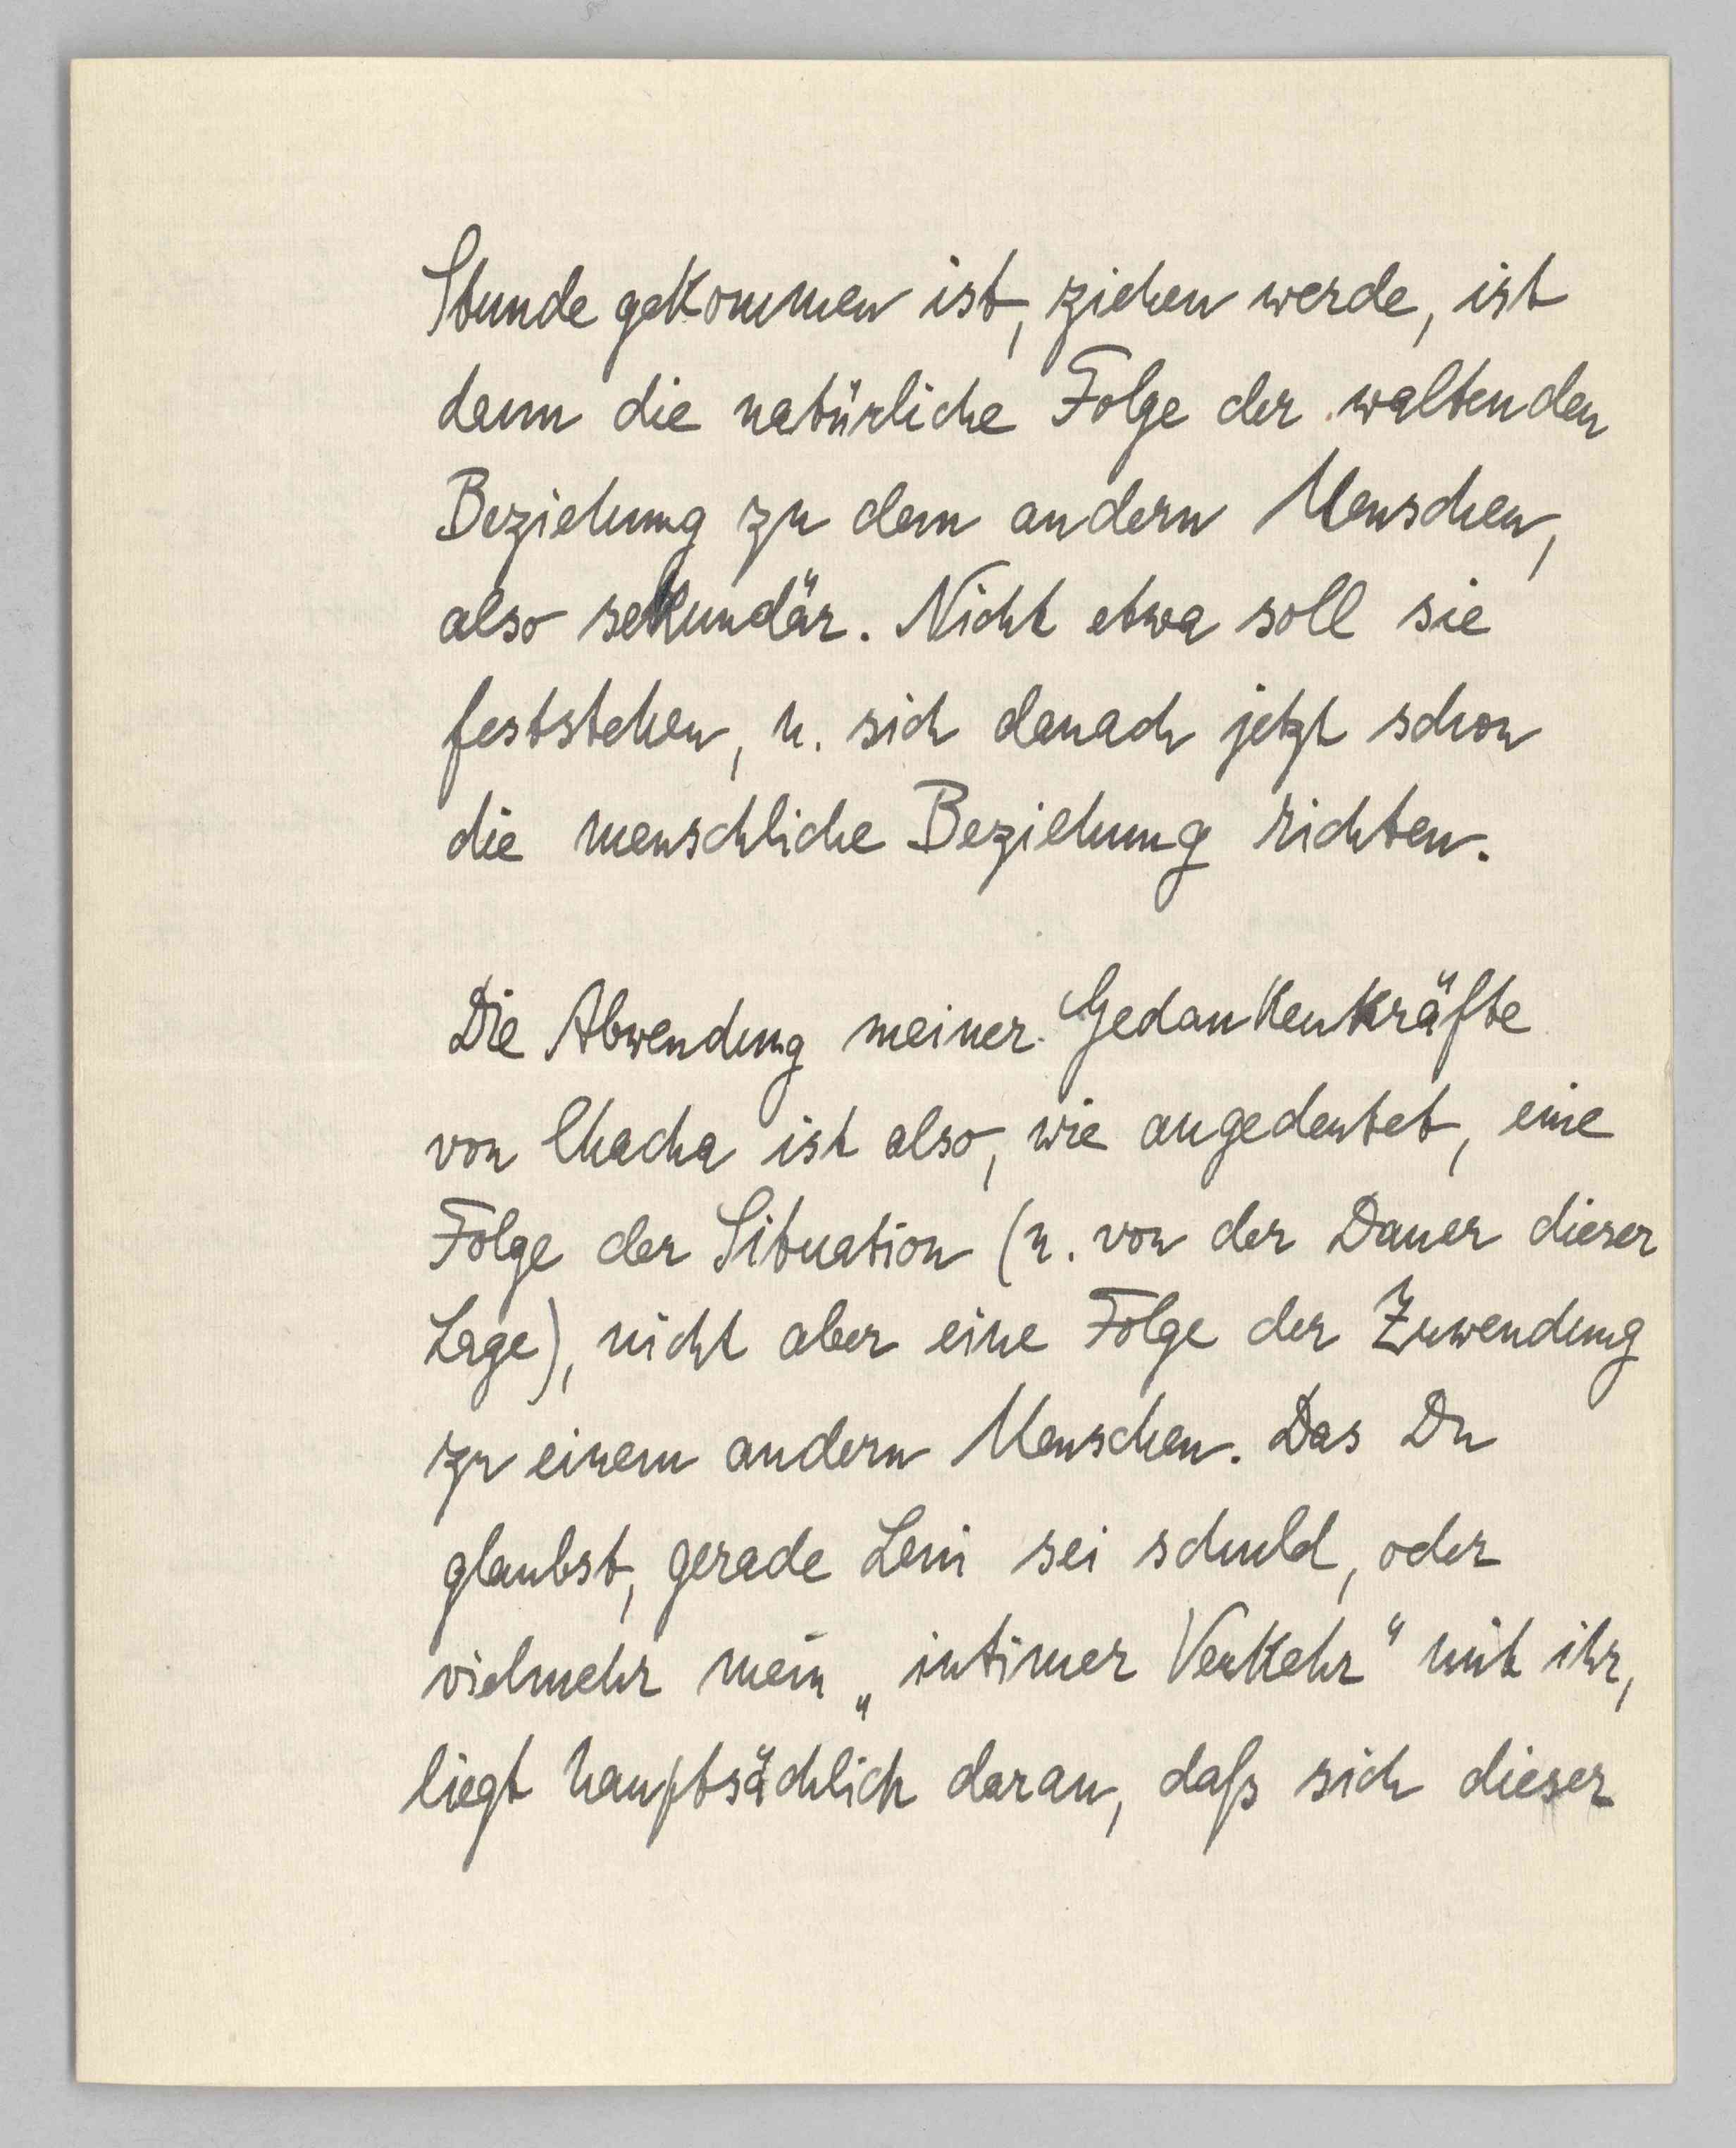 Stunde gekommen ist, ziehen werde, ist
dann die natürliche Folge der waltenden
Beziehung zu dem andern Menschen,
also sekundär. Nicht etwa soll sie
feststehen, u. sich danach jetzt schon
die menschliche Beziehung richten.
Die Abwendung meiner Gedankenkräfte
von Chacha ist also, wie angedeutet, eine
Folge der Situation (u. von der Dauer dieser
Lage), nicht aber eine Folge der Zuwendung
zu einem andern Menschen. Das Du
glaubst, gerade Leni sei schuld, oder
vielmehr mein „intimer Verkehr" mit ihr,
liegt hauptsächlich daran, daß sich dieser